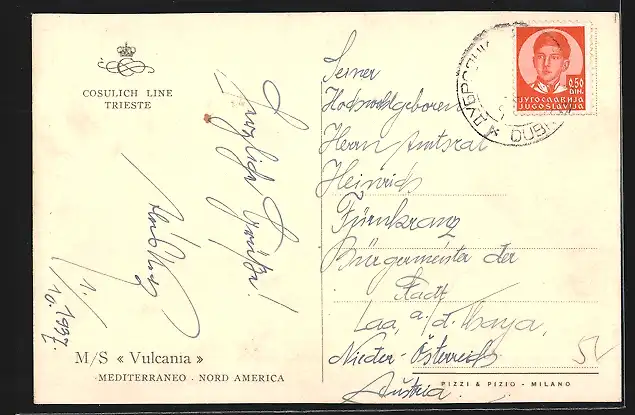 COSULICH LINE
TRIESTE
Herzliche Grüße!
1./10. 1937.
M/S « Vulcania »
MEDITERRANEO - NORD AMERICA
Seiner
Hochwohlgeboren
Herrn Amtsrat
Heinrich
Fürnkranz
Bürgermeister der
Stadt
Laa, a./d. Thaya,
Nieder-Österreich
Austria.
0.50
DIN.
ЈУГОСЛАВИЈА
JUGOSLAVIJA
ДУБРОВНИК
PIZZI & PIZIO - MILANO